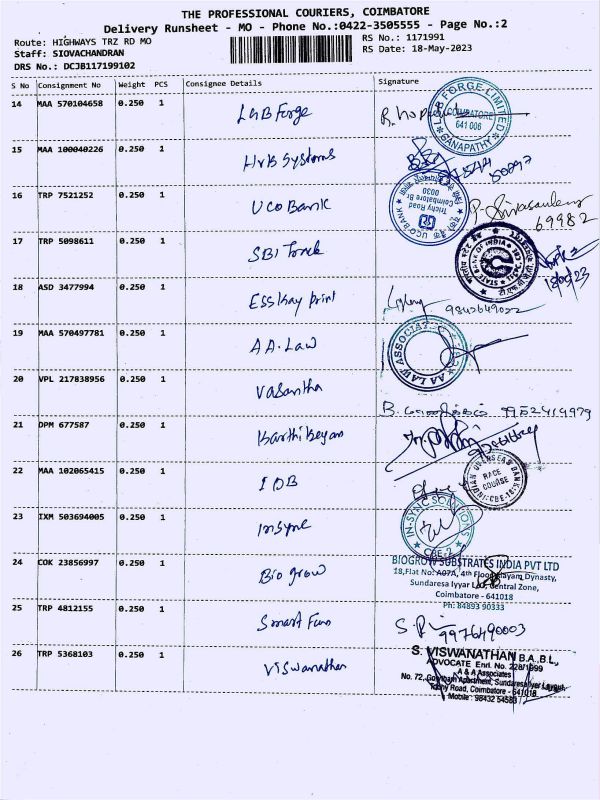 THE PROFESSIONAL COURIERS, COIMBATORE
Delivery Runsheet - MO - Phone No.:0422-3505555 - Page No.:2
Route: HIGHWAYS TRZ RD MO
RS No.: 1171991
Staff: SIOVACHANDRAN
RS Date: 18-May-2023
DRS No.: DCJB117199102
S No Consignment No Weight PCS Consignee Details Signature
14 MAA 570104658 0.250 1 LGB Forge
L.G.B FORGE LIMITED
COIMBATORE
641 006
GANAPATHY
15 MAA 100040226 0.250 1 HVB Systems
16 TRP 7521252 0.250 1 UCO Bank
UCO BANK
Trichy Road
Coimbatore Br.
0030
69982
17 TRP 5098611 0.250 1 SBI
STATE BANK OF INDIA
18/05/23
18 ASD 3477994 0.250 1 Esskay print
9842649022
19 MAA 570497781 0.250 1 AA.Law
AA LAW ASSOCIATES
20 VPL 217838956 0.250 1 Vasantha
B. 9952419979
21 DPM 677587 0.250 1 Karthikeyan
22 MAA 102065415 0.250 1 IOB
INDIAN OVERSEAS BANK
RACE
COURSE
CBE-18
23 IXM 503694005 0.250 1 Insync
IN-SYNC SOLUTIONS
CBE-2
24 COK 23856997 0.250 1 Bio grow
BIOGROW SUBSTRATES INDIA PVT LTD
18,Flat No: A07A, 4th Floor, Mayam Dynasty,
Sundaresa Iyyar Lay, Central Zone,
Coimbatore - 641018
Ph: 84893 90333
25 TRP 4812155 0.250 1 Smart Fun
S.P
9976490003
26 TRP 5368103 0.250 1 Viswanathan
S. VISWANATHAN B.A.,B.L,
ADVOCATE Enrl. No. 228/1999
A & A Associates
No. 72, Gowtham Apartment, Sundaresaiyer Layout,
Trichy Road, Coimbatore - 641018.
Mobile : 98432 54583